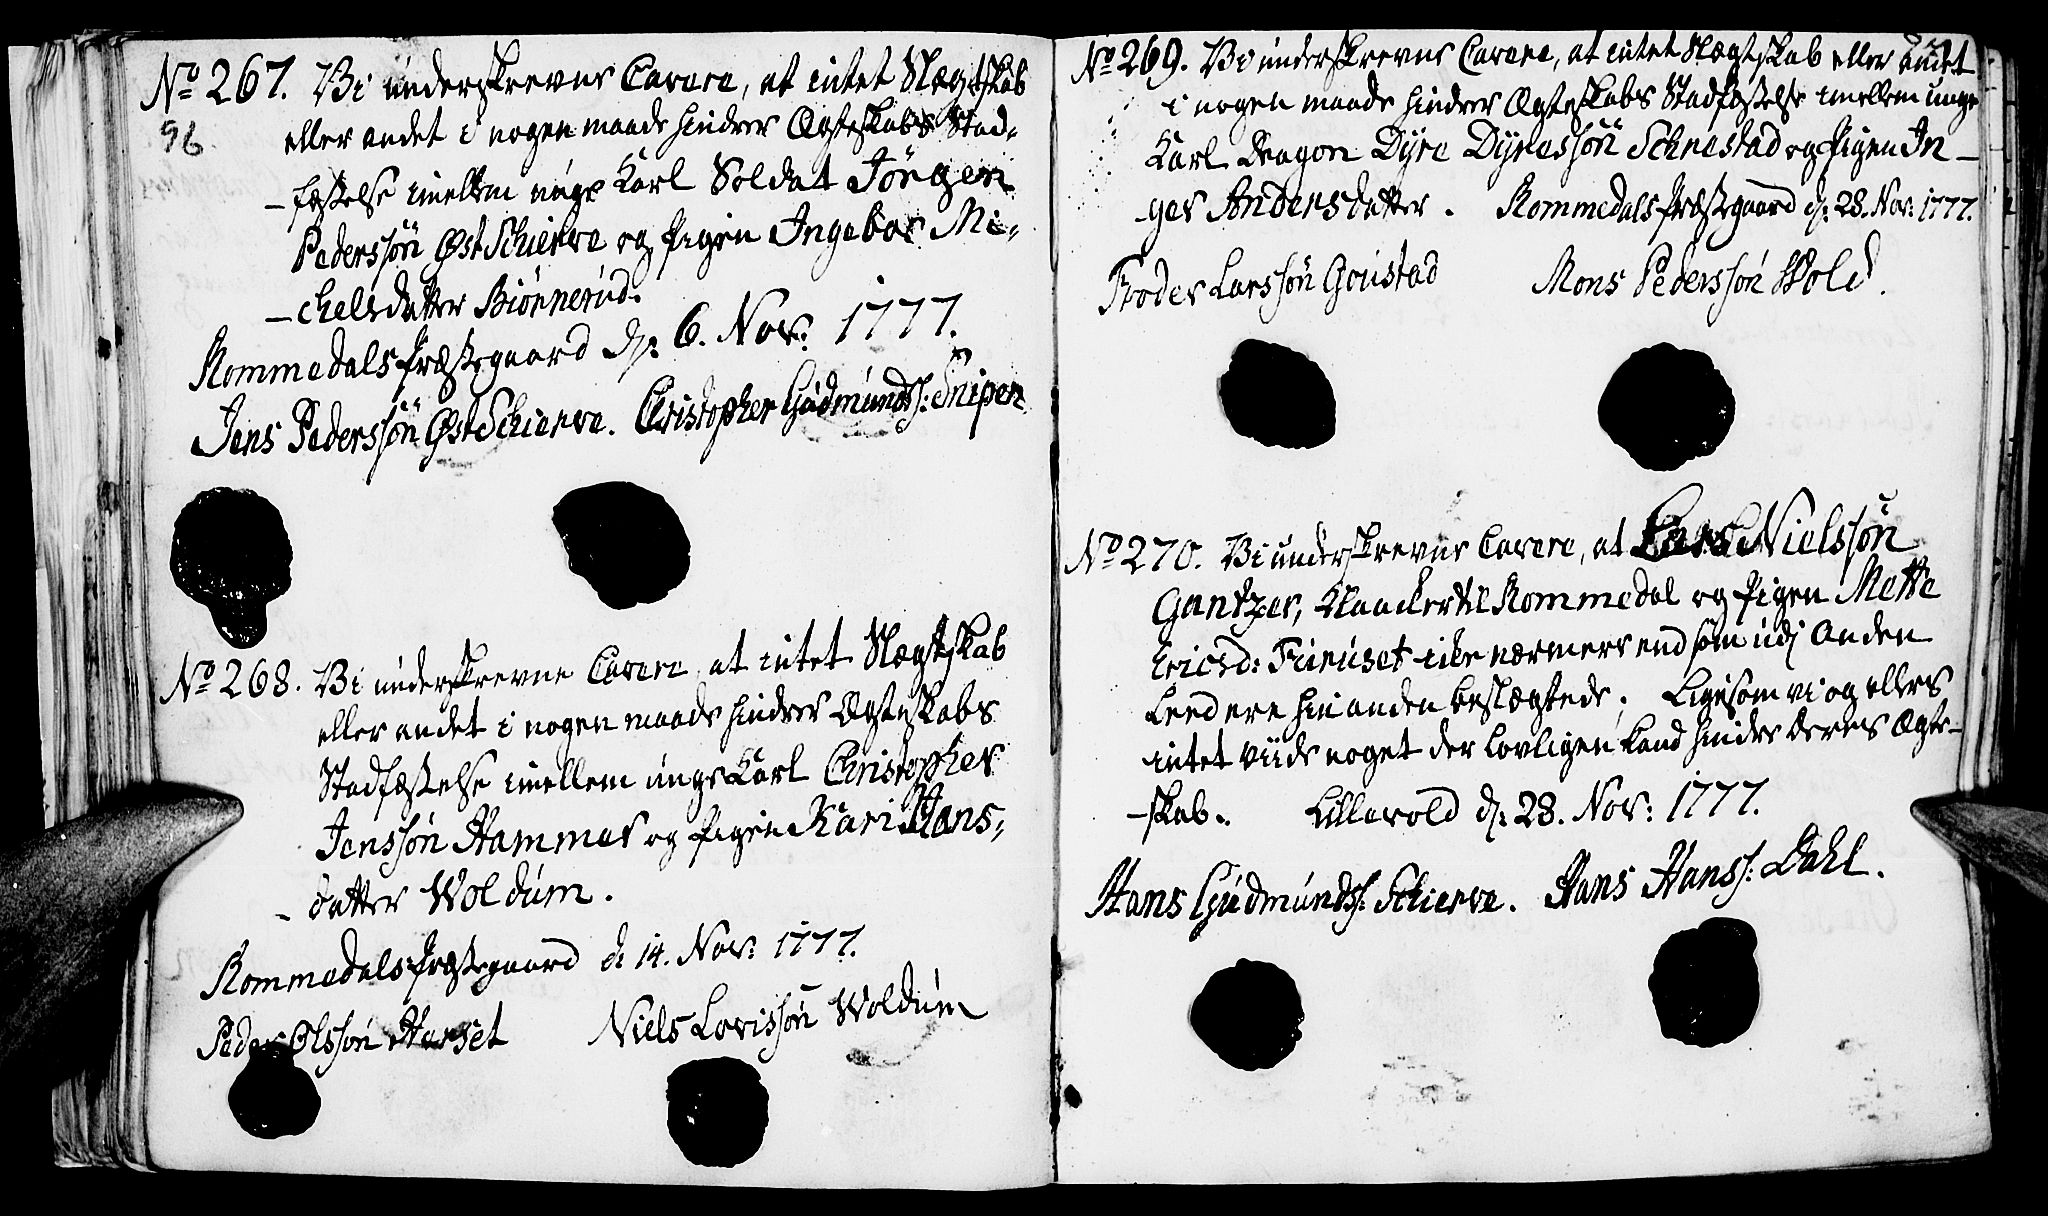 No 267. Vi underskrevne Cavere, at intet Slægtskab
96
eller andet i nogen maade hindrer Ægteskabs Stad-
-fæstelse imellem unge Karl Soldat Jörgen
Pederssön Øst Schierve og Pigen Ingebor Mi-
-chelsdatter Biönnerud.
Rommedals Præstegaard d: 6. Nov: 1777.
Jens Pederssön Øst Schierve. Christopher Gudmunds: Snipen
No 268. Vi underskrevne Cavere, at intet Slægtskab
eller andet i nogen maade hindrer Ægteskabs
Stadfæstelse imellem unge Karl Christopher
Jenssön Hammer og Pigen Kari Hans-
-datter Woldum.
Rommedals Præstegaard d: 14. Nov: 1777.
Peder Olssön Harset Niels Lovissön Woldum
No 269. Vi underskrevne Cavere, at intet Slægtskab eller andet
i nogen maade hindrer Ægteskabs Stadfæstelse imellem unge
Karl Dragon Dyre Dyressön Schnestad og Pigen In-
-ger Andersdatter. Rommedals Præstegaard d: 28. Nov: 1777.
Troder Larssön Goustad Mons Pederssön Wold.
No 270. Vi underskrevne Cavere, at Lars Nielssön
Gantzer, Klocker til Rommedal og Pigen Mette
Ericsd: Furuset icke nærmere end som udj Anden
Leed ere hinanden beslægtede; Ligesom vi og ellers
intet viide noget der lovligen kand hindre deres Ægte-
-skab. Lillevold d: 28. Nov: 1777.
Hans Gudmunds: Schierve. Hans Hans: Dahl.